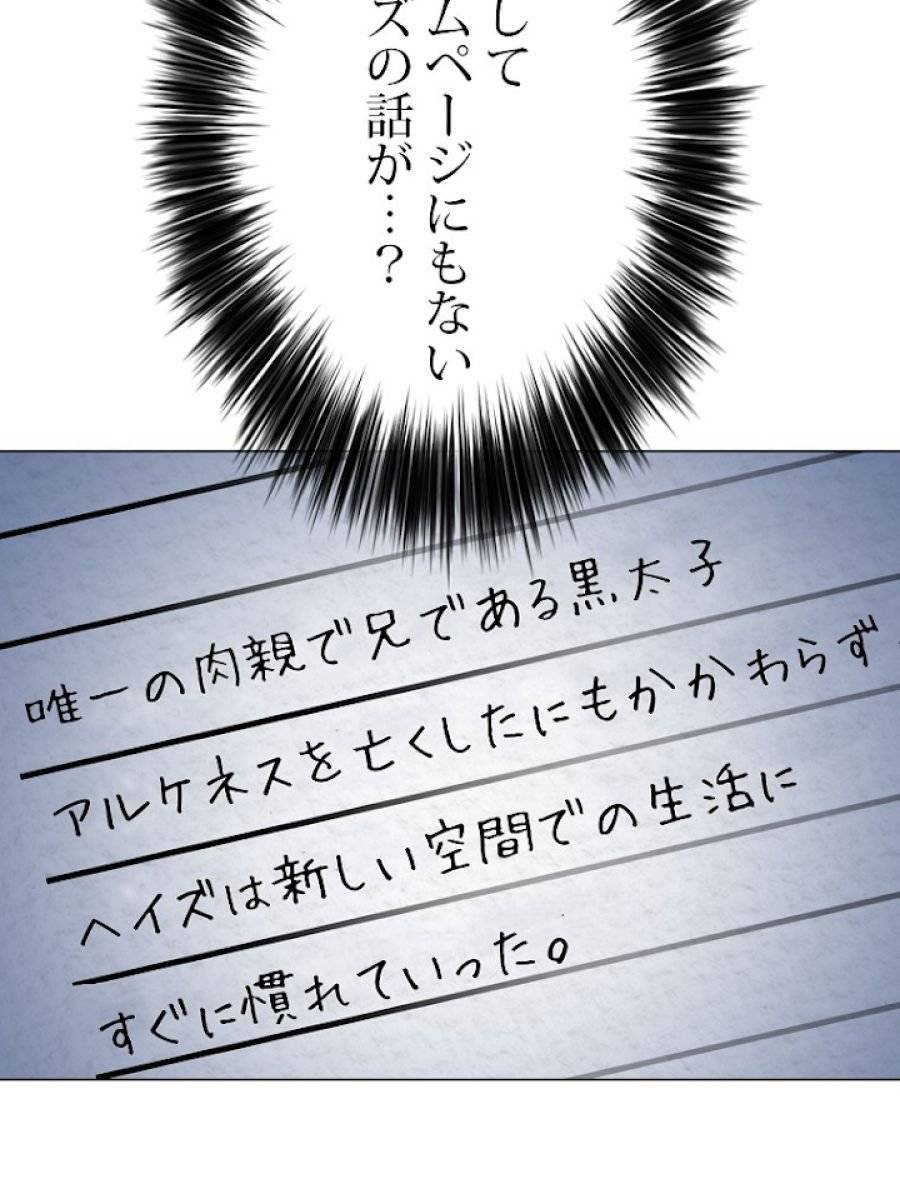 して
ムページにもない
ズの話が…？
唯一の肉親で兄である黒太子
アルケネスを亡くしたにもかかわらず、
ヘイズは新しい空間での生活に
すぐに慣れていった。